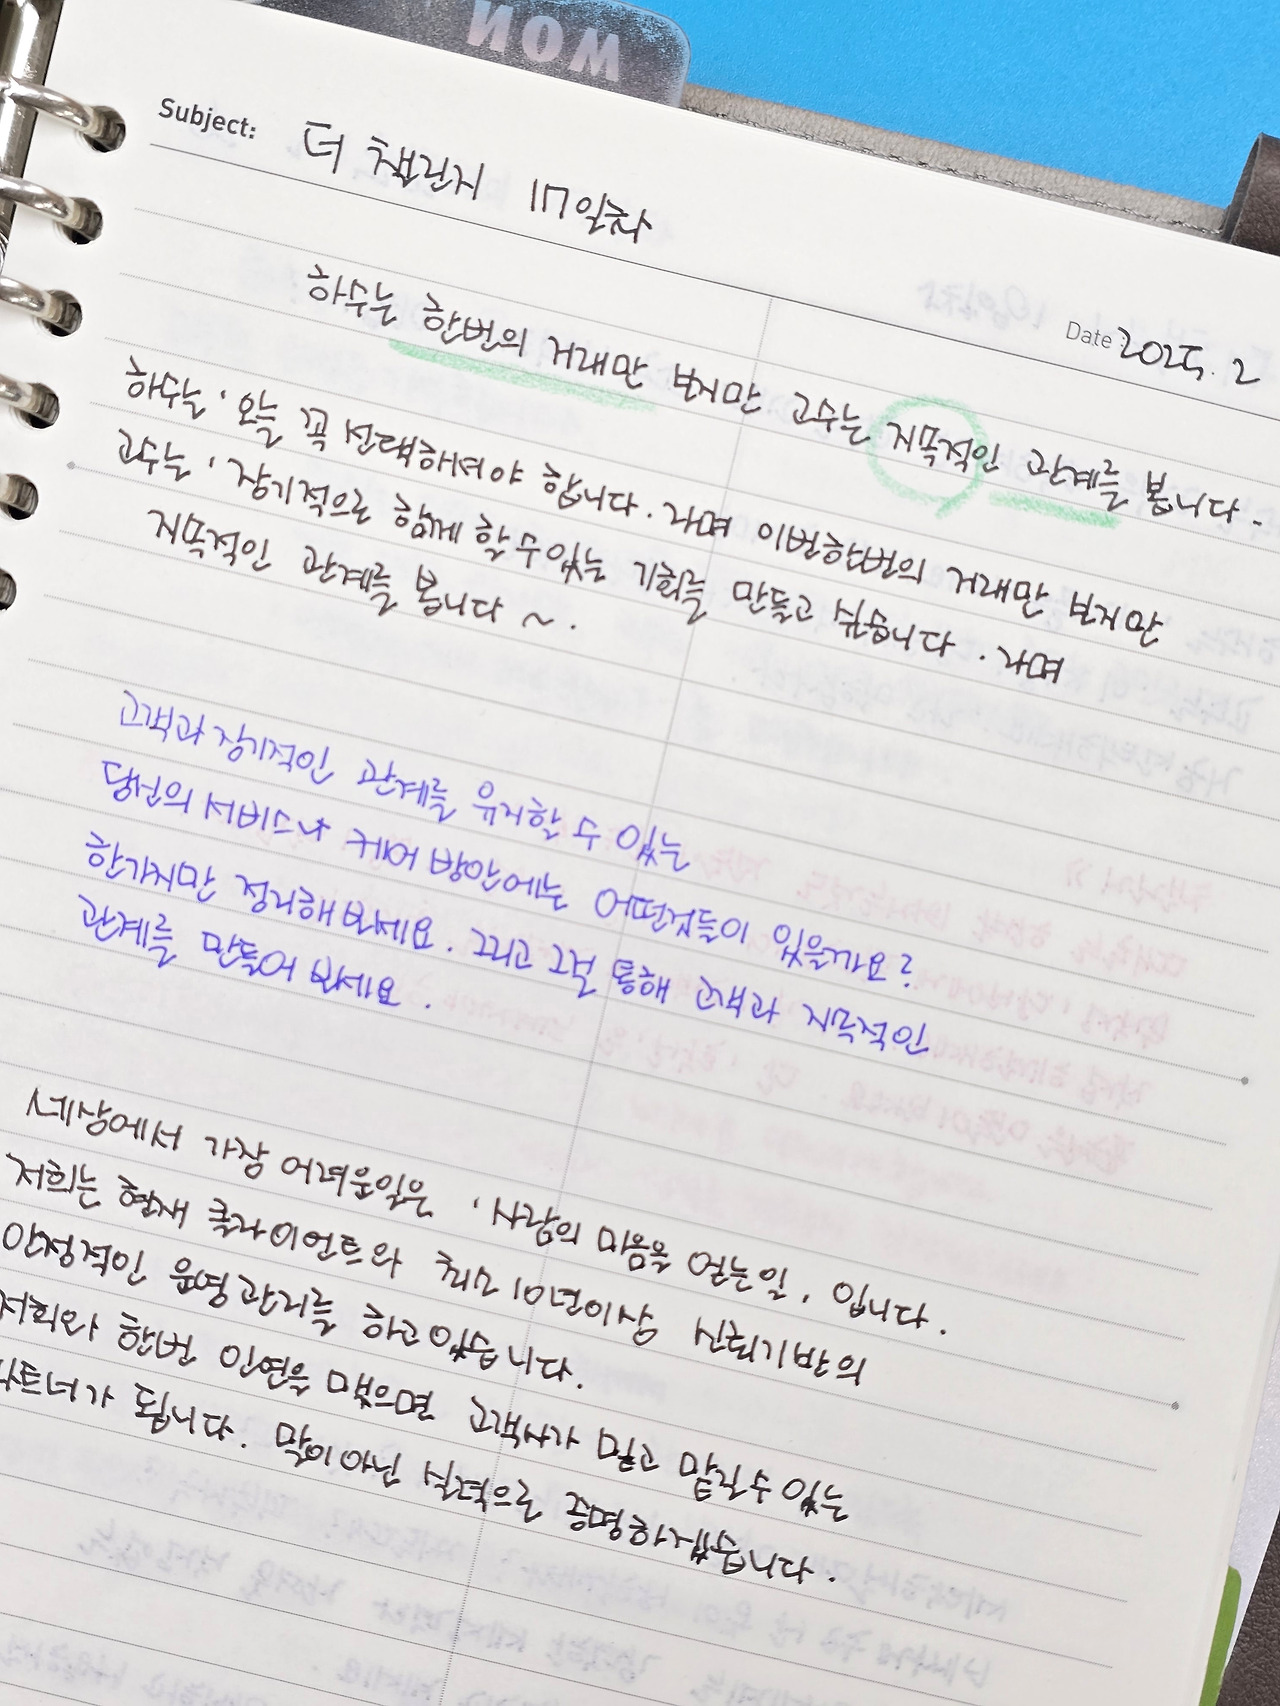 WON
Subject: 더 챌린지 17일차
Date: 2025. 2
하수는 한번의 거래만 보지만 고수는 지목적인 관계를 봅니다.
하수는 '오늘 꼭 선택해셔야 합니다. 라며 이번한번의 거래만 보지만
고수는 '장기적으로 함께 할 수 있는 기회를 만들고 싶습니다. 라며
지목적인 관계를 봅니다 ~.
고객과 장기적인 관계를 유지할 수 있는
당신의 서비스나 케어 방안에는 어떤것들이 있을까요?
한가지만 정리해보세요. 그리고 그걸 통해 고객과 지목적인
관계를 만들어 보세요.
세상에서 가장 어려운일은 '사람의 마음을 얻는일, 입니다.
저희는 현재 클라이언트와 최소 10년이상 신뢰기반의
안정적인 운영관리를 하고있습니다.
저희와 한번 인연을 맺으면 고객사가 믿고 맡길수 있는
파트너가 됩니다. 말이아닌 실력으로 증명하겠습니다.